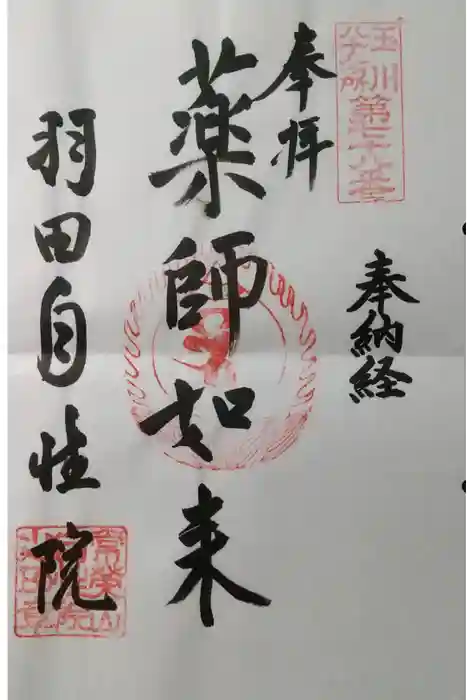 玉川
八十八ヶ所
第七十六番
奉納経
奉拝
薬師如来
羽田自性院